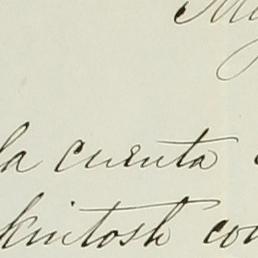 la cuenta
kintosh con